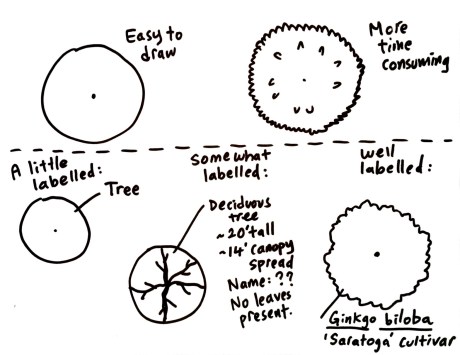 Easy to
draw
More
time
consuming
A little
labelled:
Tree
Somewhat
labelled:
Deciduous
tree
~20' tall
~14' canopy
spread
Name: ??
No leaves
present.
well
labelled:
Ginkgo biloba
'Saratoga' cultivar